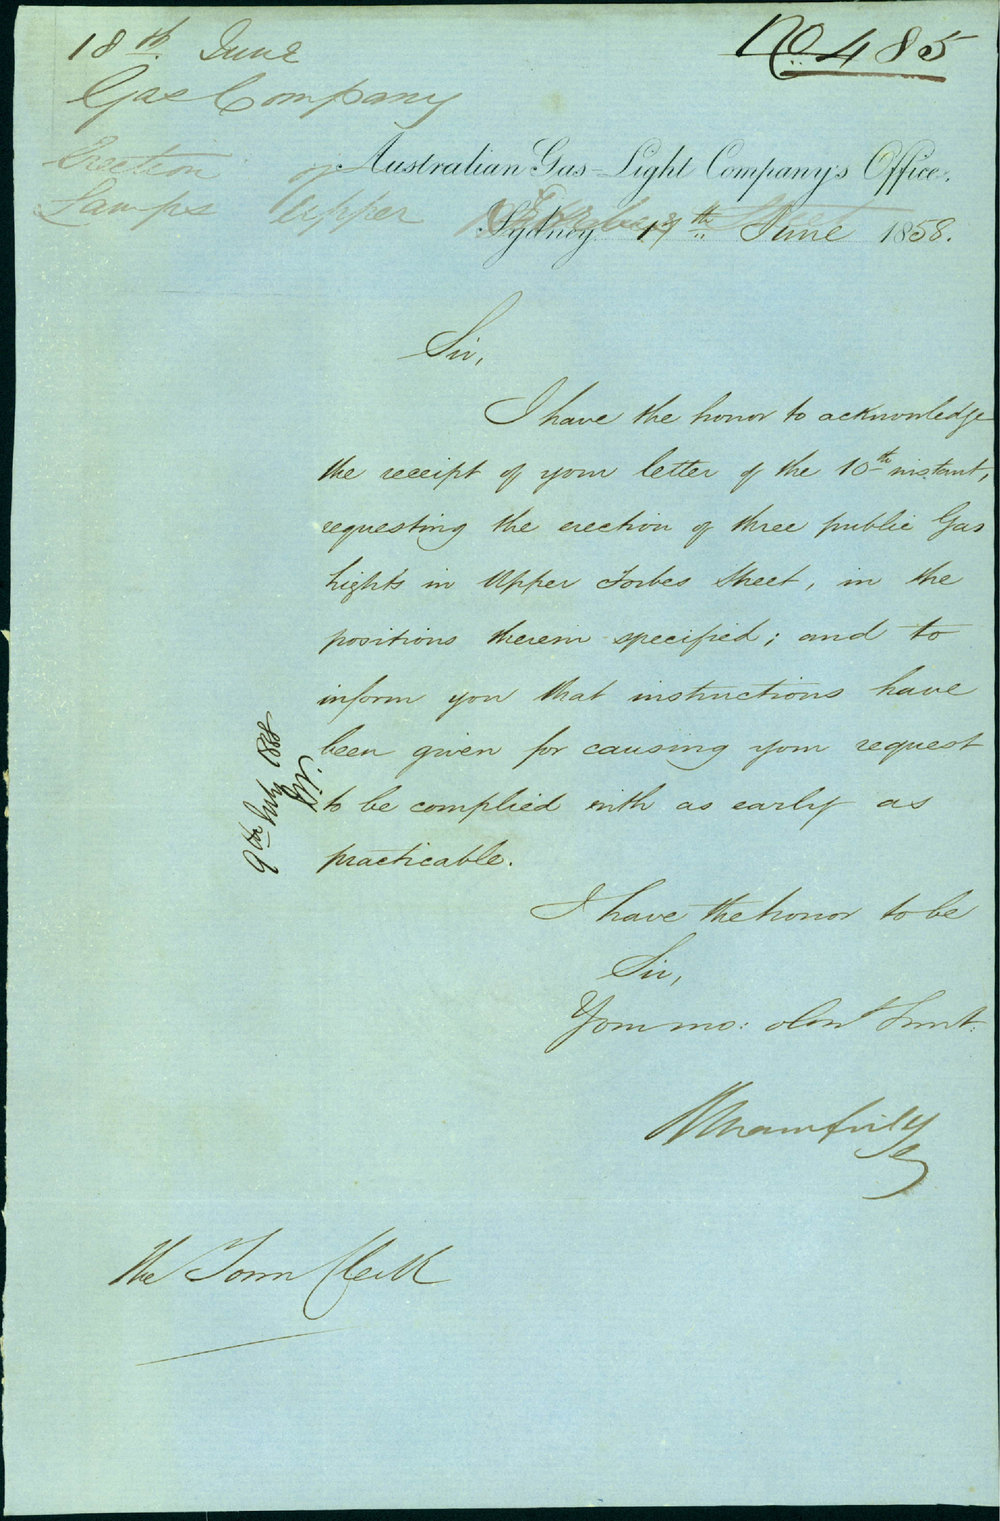 No 485
18th June
Gas Company
Erection of
Lamps Upper Forbes Street
Australian Gas-Light Company's Office.
Sydney 17th June 1858.
Sir,
I have the honor to acknowledge
the receipt of your letter of the 10th instant,
requesting the erection of three public Gas
Lights in Upper Forbes Street, in the
positions therein specified; and to
inform you that instructions have
been given for causing your request
to be complied with as early as
practicable.
I have the honor to be
Sir,
Your mo: obnt Servt.
The Town Clerk
9th July 1858